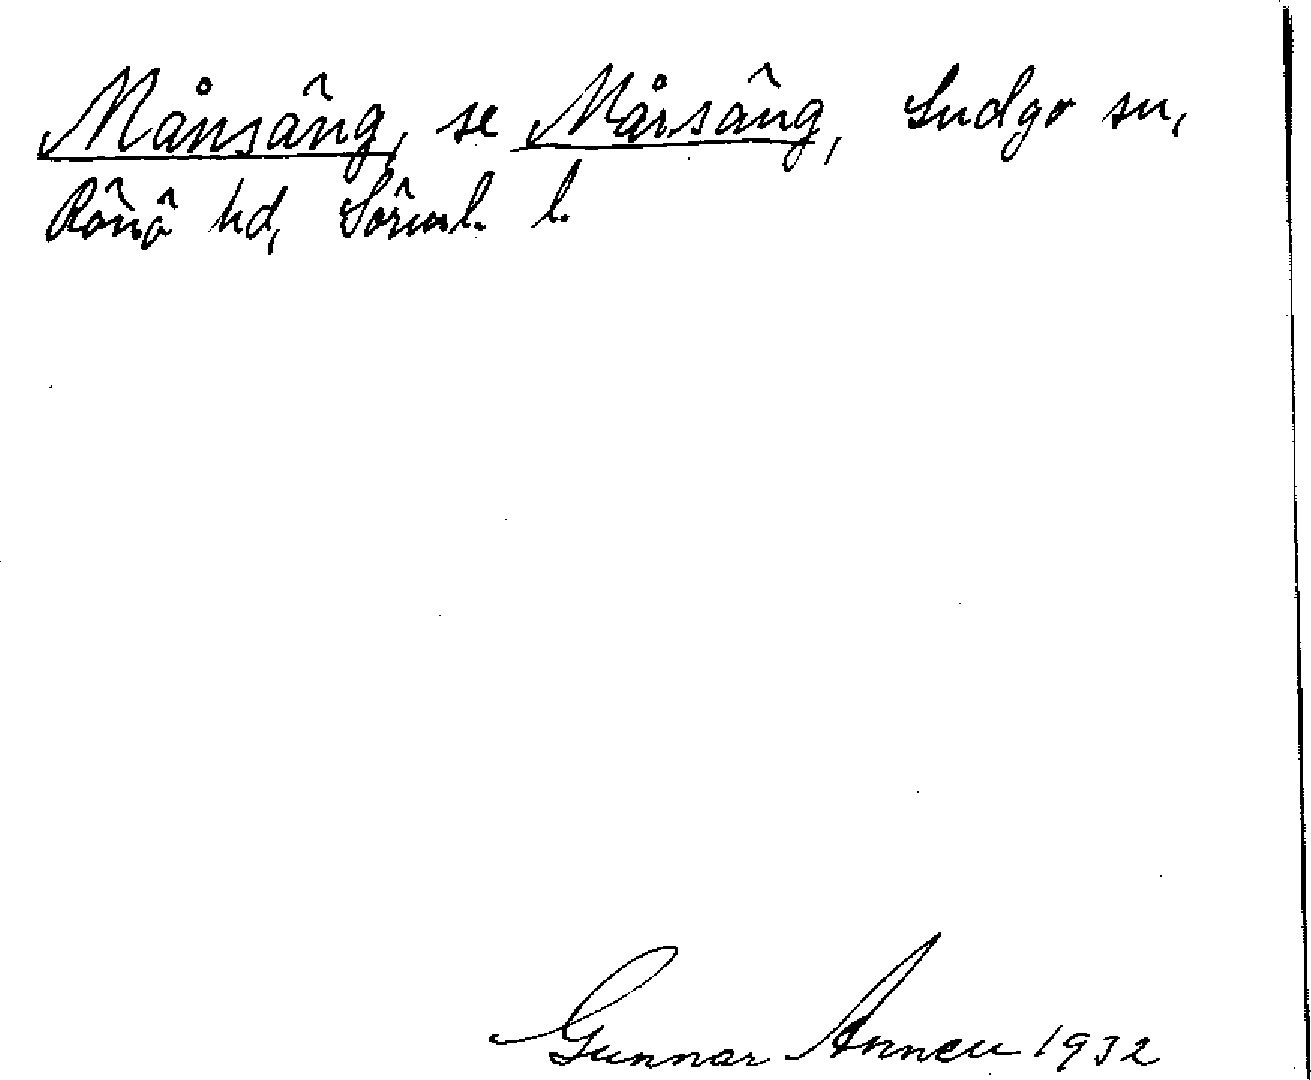 Månsäng, se Mårsäng, Ludgo sn,
Rönö hd, Söderml. l.
Gunnar Annell 1932